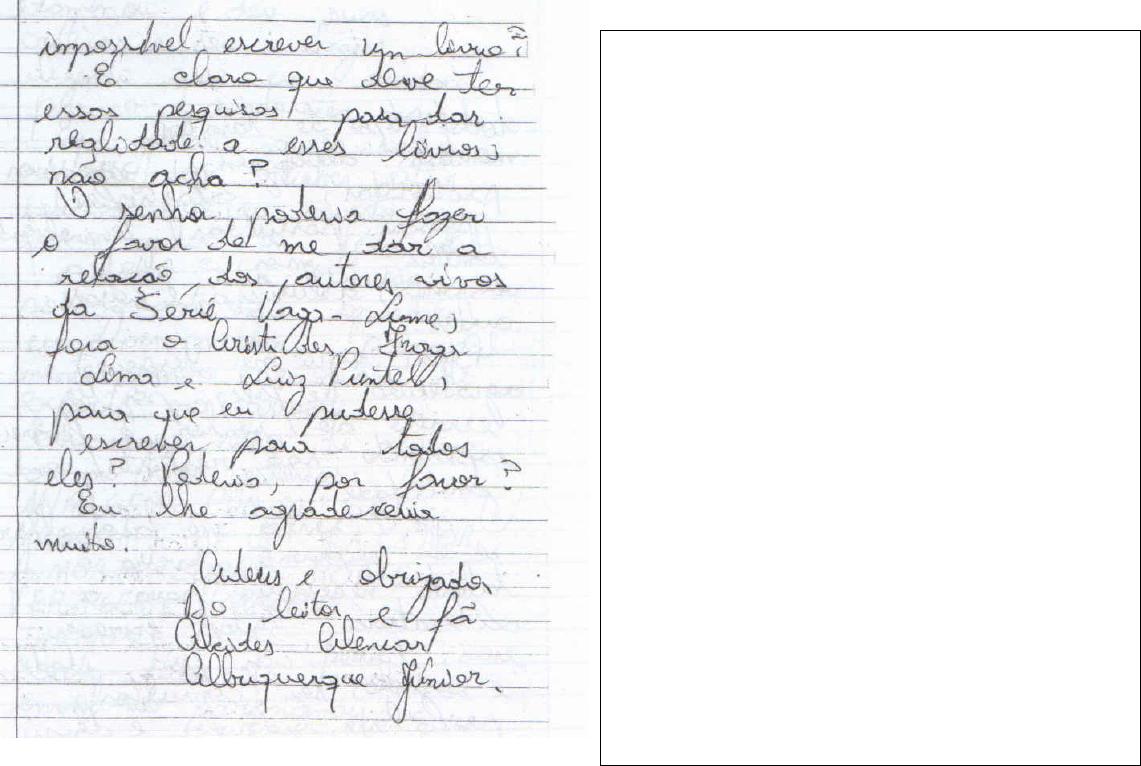 impossível escrever um livro?
E claro que deve ter
essas pesquisas para dar
realidade a esses livros,
não acha?
O senhor poderia fazer
o favor de me dar a
relação dos autores vivos
da Série Vaga-Lume,
fora o Aristides Fraga
Lima e Luiz Puntel,
para que eu pudesse
escrever para todos
eles? Poderia, por favor?
Eu lhe agradeceria
muito.
Adeus e obrigado,
Do leitor e fã
Alcides Alencar
Albuquerque Júnior.